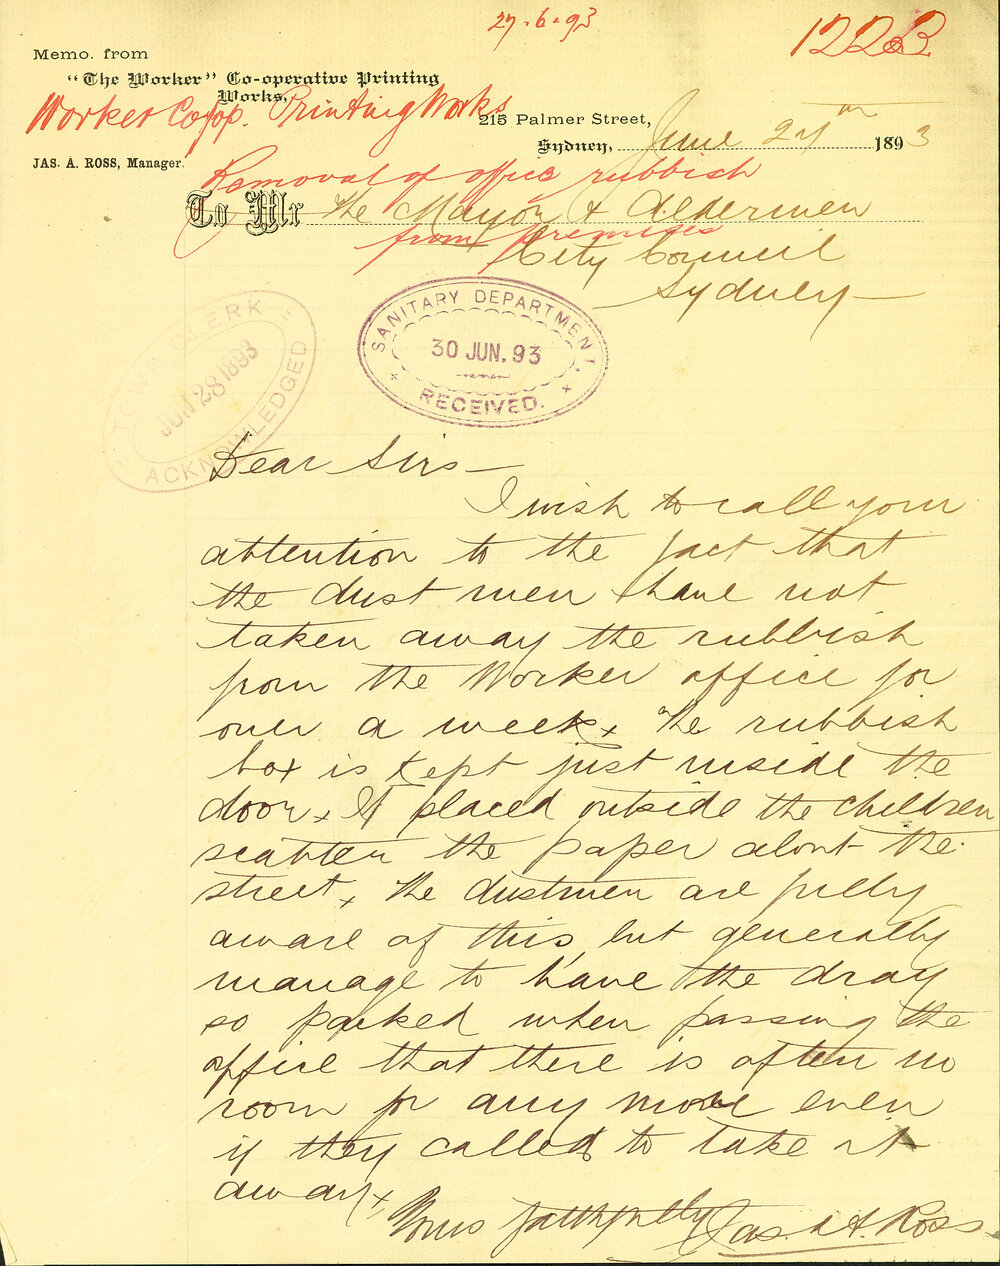 27.6.93
1223
Memo. from
"The Worker" Co-operative Printing
Works,
Worker Coop. Printing Works
215 Palmer Street,
Sydney, June 27th 1893
JAS. A. ROSS, Manager.
Removal of office rubbish
To Mr the Mayor & Aldermen
from premises
City Council
Sydney
SANITARY DEPARTMENT.
30 JUN. 93
RECEIVED.
TOWN CLERK
JUN 28 1893
ACKNOWLEDGED
Dear Sirs –
I wish to call your
attention to the fact that
the dust men have not
taken away the rubbish
from the Worker office for
over a week. The rubbish
box is kept just inside the
door. If placed outside the children
scatter the paper about the
street. The dustmen are fully
aware of this, but generally
manage to have the dray
so packed when passing the
office that there is often no
room for any more even
if they called to take it
away.
Yours faithfully Jas. A. Ross.